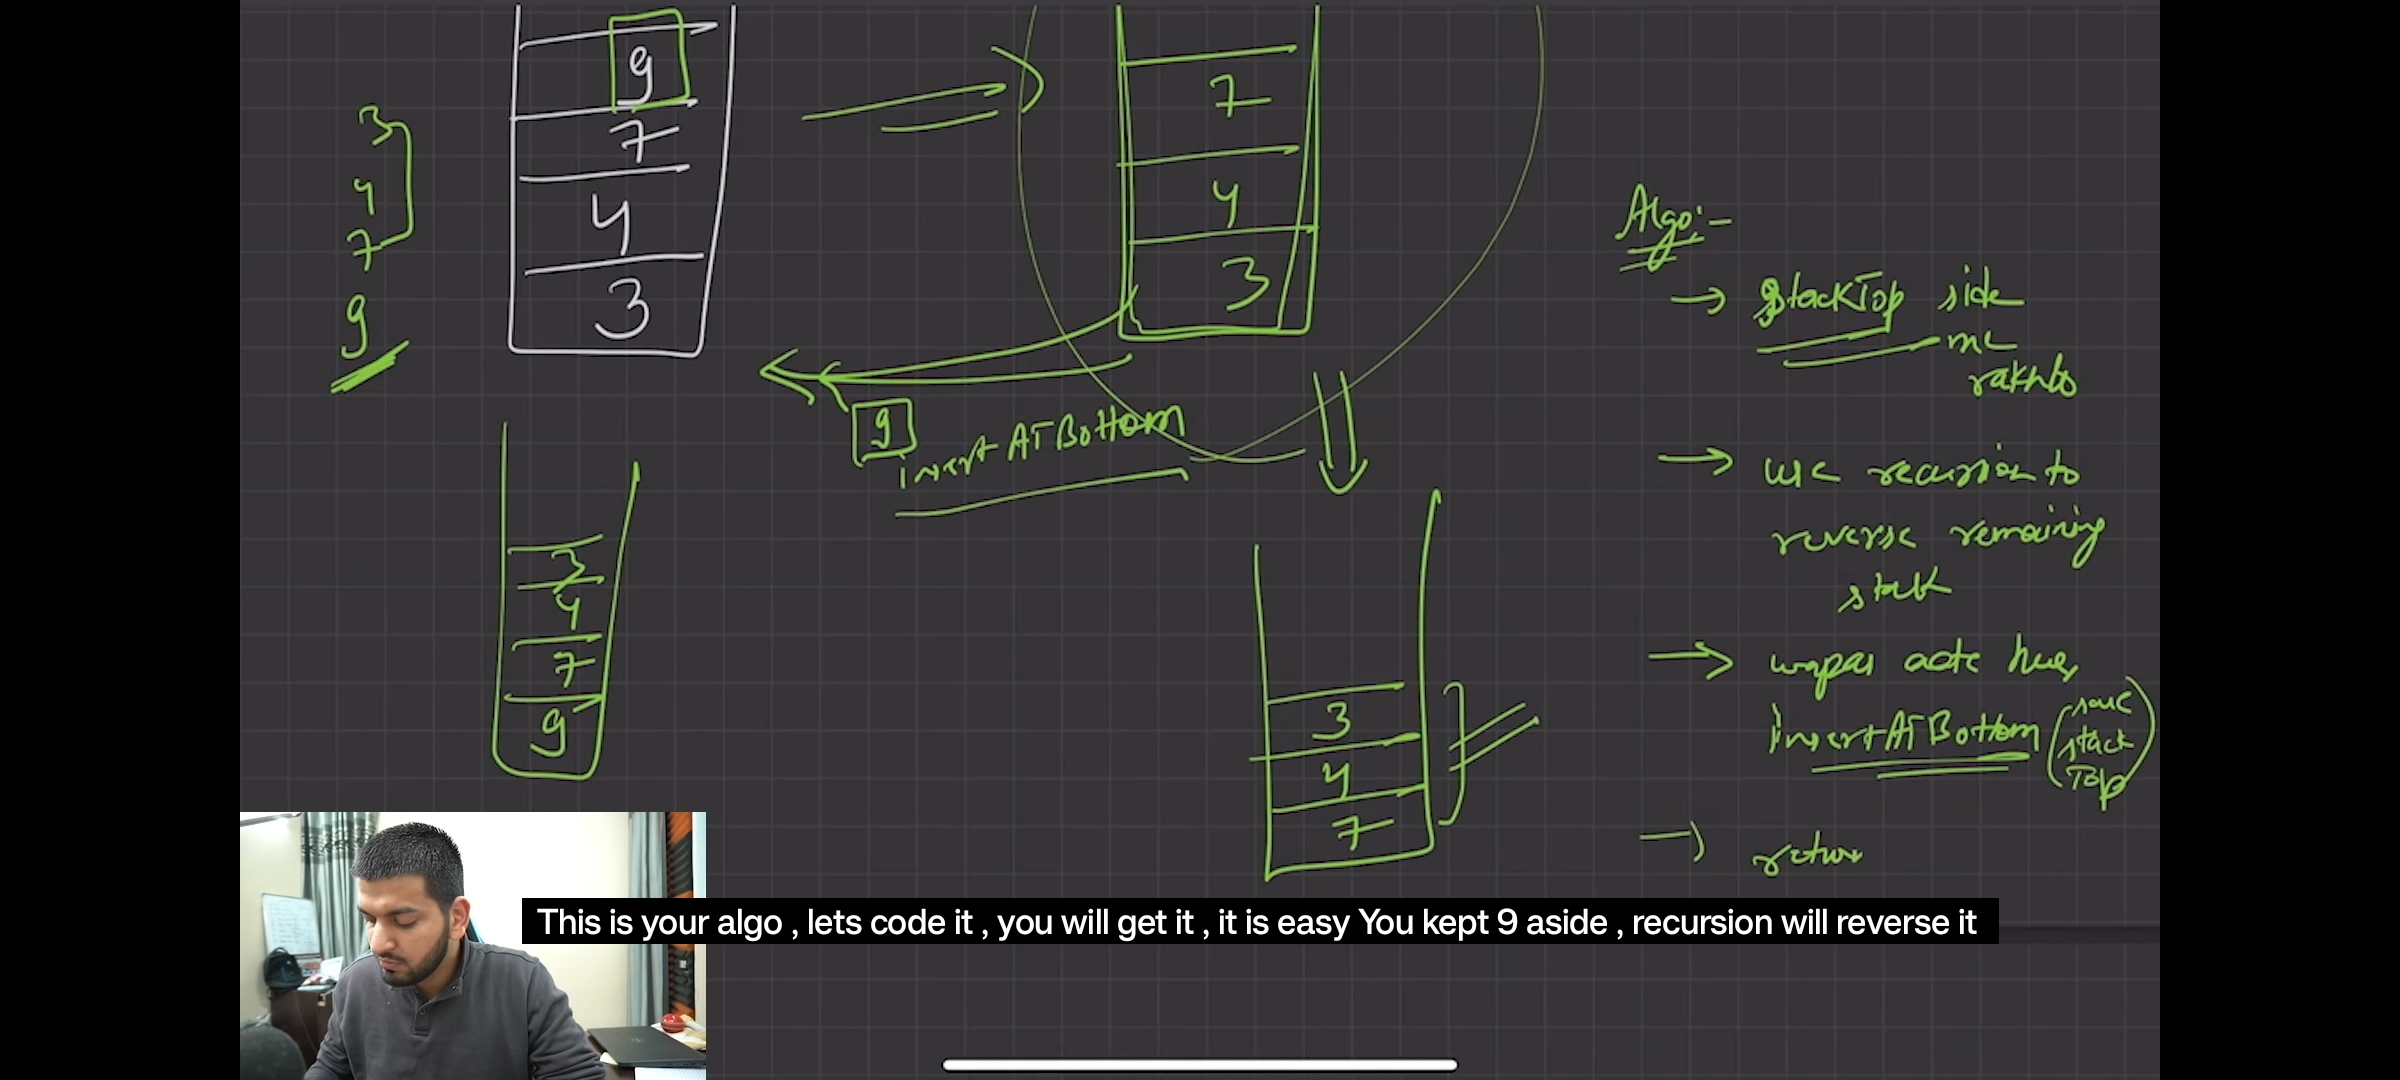 9
7
4
3
3
4
7
9
7
4
3
9
insert AT Bottom
3
4
7
9
3
4
7
Algo:-
→ StackTop side
me
rakhlo
→ use recursion to
reverse remaining
stack
→ wapas aate hue,
InsertATBottom
stack
Top
→ return
This is your algo , lets code it , you will get it , it is easy You kept 9 aside , recursion will reverse it